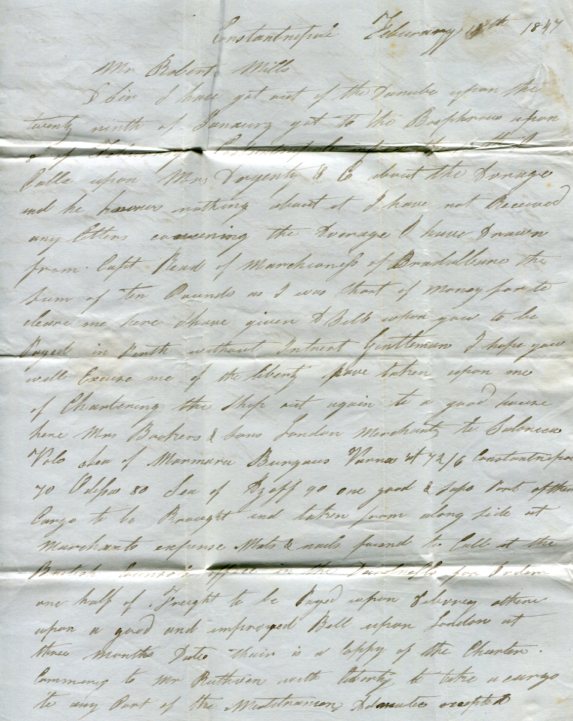 Constantinople February 18th 1847
Mr Robert Mills
Sir I have got out of the Danube upon the
twenty ninth of January got to the Bosphorus upon
Calld upon Mrs Sargents & C about the Average
and he knows nothing about it I have not Received
any letters concerning the Average I have Drawn
from Capt Read of Marchioness of Bradalbane the
sum of Ten Pounds as I was short of money for to
cleare me here I have given A Bill upon yous to be
Payed in Perth without Intrest Gentleman I hope yous
will Excuse me of the liberty I have taken upon me
of Chartering the Ship out again to a good house
here Mrs Brokers & Sons London Merchants to Salonica
Volo Sea of Marmara Burgaus Varna at 72/6 Constantinople
70 Odessa 80 Sea of Azoff 90 one good & safe Port of them
Cargo to be Brought and taken from along side at
Marchants expense Mats & nails found to Call at the
British Consul's office in the Dardnalls for Orders
one half of Freight to be Payed upon Delivery others
upon a good and improved Bill upon London at
three Months Date thair is a Coppy of the Charter
Comming to Mr Ruthven with liberty to take a cargo
to any Port of the Meditranian Adriatic excepted